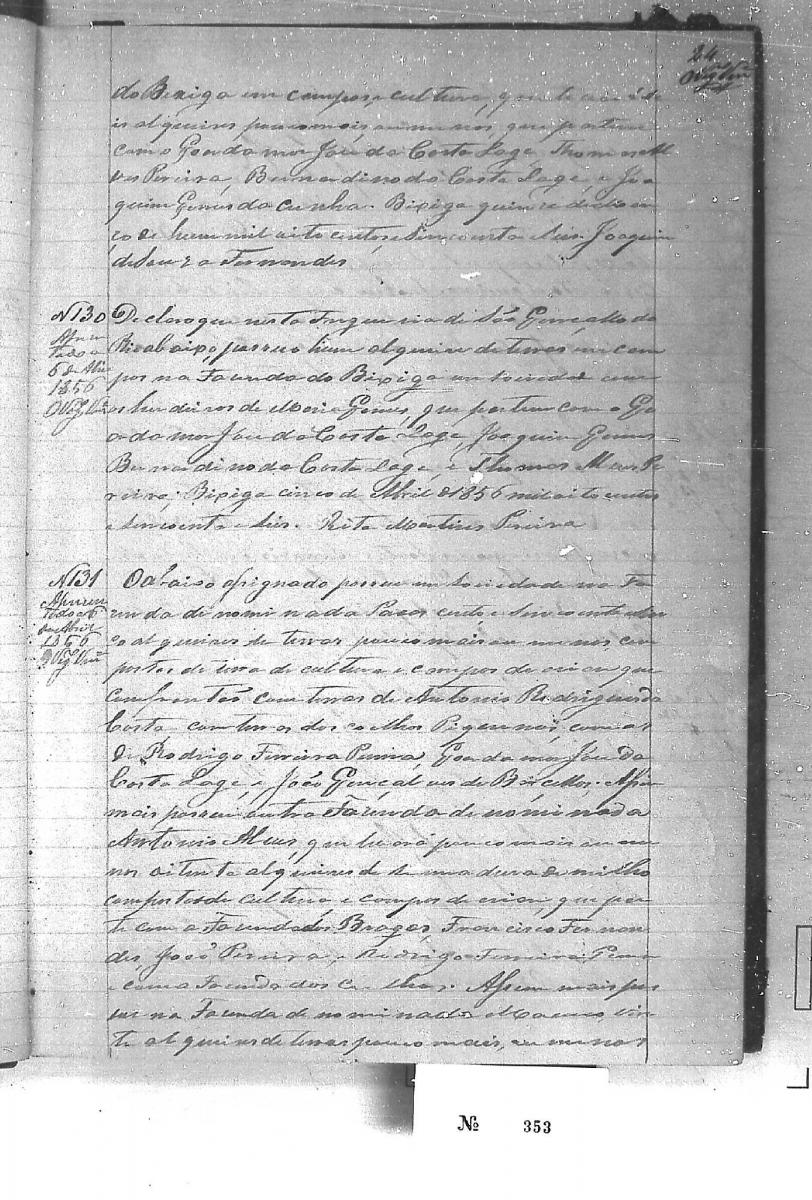 24
do Bexiga em campos e cultura, que levará se
is alqueires pouco mais ou menos, que partem
com o Goarda mor José da Costa Lage, Thomas Al
ves Pereira, Bernardino da Costa Lage, e Joa
quim Gomes da Cunha. Bixiga quinze de
de hum mil oito centos e sincoenta e seis. Joaquim
de Souza Fernandes
N 130
Apresen
tado a
6 de Abril
1856
O Vigr.o
Declaro que nesta Freguesia de São Gonçallo do
Rio abaixo possuo hum alqueire de terras em cam
pos na Fazenda do Bixiga em sociedade com
os herdeiros de Gomes, que partem com o Go
arda mor José da Costa Lage, Joaquim Gomes
Bernardino da Costa Lage, e Thomas Alves Pe
reira; Bixiga cinco de Abril de 1856 mil oito centos
e sincoenta e seis. Rita Martins Pereira
N 131
Apresen
tado a 6
de Abril
1856
O Vigr.o
O abaixo asignado possue em sociedade na Fa
zenda de nominada cento e sincoenta
alqueires de terras pouco mais ou menos com
postos de terra de cultura e campos de criar que
confrontão com terras de Antonio Rodrigues da
Costa, com terras dos coelhos Piquenos, com as
de Rodrigo Ferreira Penna, Goarda mor José da
Costa Lage, e João Gonçalves de Barcellos. Asim
mais possue outra Fazenda de nominada
Antonio Alves, que levará pouco mais ou me
nos oitenta alqueires de semeadura de milho
compostos de cultura e campos de criar, que par
te com a Fazenda dos Bragas, Francisco Fernan
des, José Pereira, e Rodrigo Ferreira Penna
e com a Fazenda dos Coelhos. Asim mais pos
sue na Fazenda de nominada do Macuco, vin
te alqueires de terras pouco mais, ou menos
Nº 353